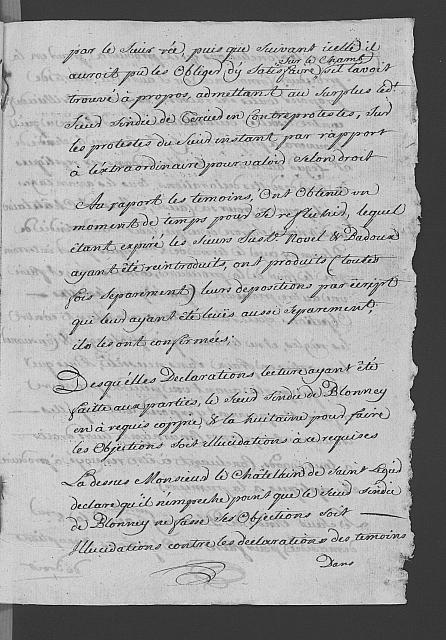 par le Sieur rée, puis que Suivant icelle il
auroit pu les Obliger d'y Satisfaire Sur le Champ s'il l'avoit
trouvé à propos, admettant au Surplus led.t
Sieur Sindic de Cerced en Contreprotestes, Sur
les protestes du Sieur instant par rapport
à l'extraordinaire pour valoir Selon droit
Au raport les temoins, Ont Obtenu un
moment de temps pour Se reflechir, lequel
étant expiré les Sieurs Susd.t Rovel & Dadoux
ayant été reintroduits, ont produits (toutes
fois Separement) leurs depositions par ecript
qui leur ayant été leües aussi Separement,
ils les ont confirmées;
Desquelles Declarations lecture ayant été
faitte aux parties, le Sieur Sindic de Blonney
en à requis coppie, & la huitaine pour faire
les Objections Soit illucidations à ce requises
La dessus Monsieur le Châtelain de Saint Legié
declare qu'il n'impeche point que le Sieur Sindic
de Blonney ne fasse Ses Objections Soit
Illucidations contre les declarations des temoins
Dans